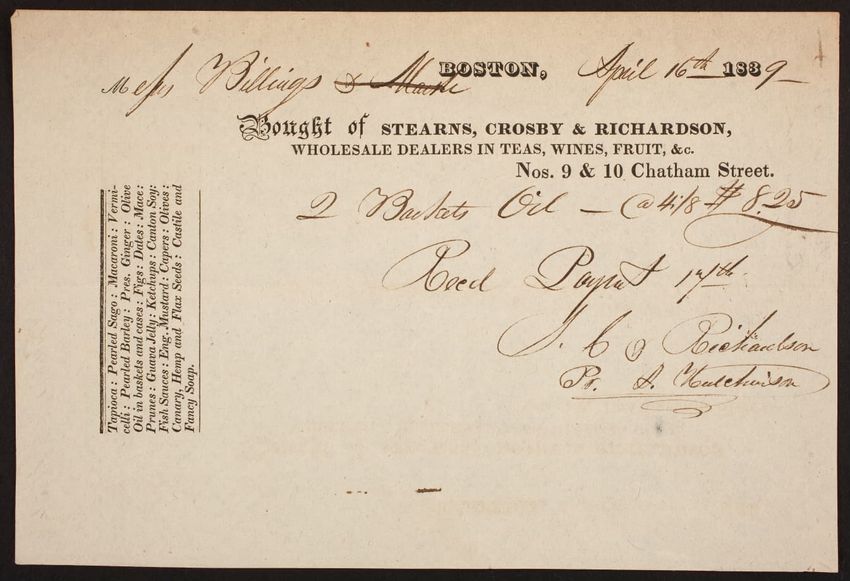 BOSTON, April 16th 1839
Mess Billings &
Bought of STEARNS, CROSBY & RICHARDSON,
WHOLESALE DEALERS IN TEAS, WINES, FRUIT, &c.
Nos. 9 & 10 Chatham Street.
2 Baskets Oil — @ 4 1/8 - $8.25
Recd Paymt 17th
S. C & Richardson
Pr. A. Hutchinson
Tapioca: Pearled Sago: Macaroni: Vermi-
celli: Pearled Barley: Pres. Ginger: Olive
Oil in baskets and cases: Figs: Dates: Mace:
Prunes: Guava Jelly: Ketchups: Canton Soy:
Fish Sauces: Eng. Mustard: Capers: Olives:
Canary, Hemp and Flax Seeds: Castile and
Fancy Soap.